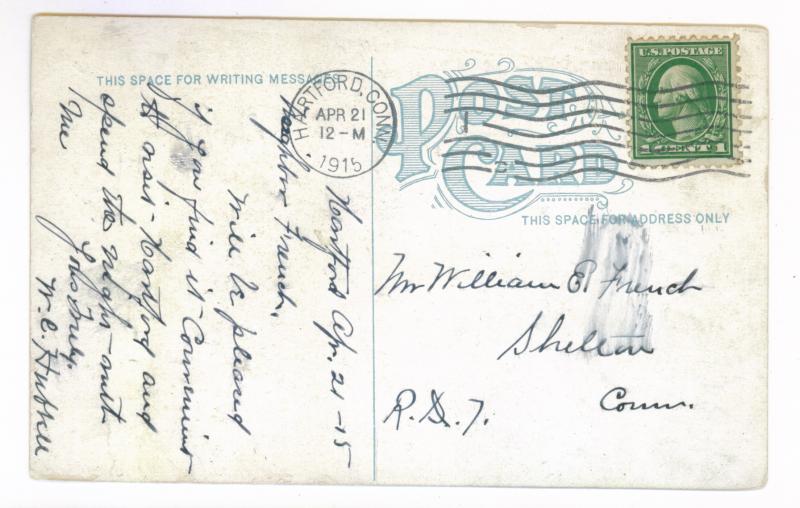 THIS SPACE FOR WRITING MESSAGES
POST CARD
THIS SPACE FOR ADDRESS ONLY
U.S. POSTAGE
1 CENT 1
HARTFORD, CONN.
APR 21
12-M
1915
Hartford Apr. 21-15
Neighbor French.
Will be pleased
if you find it Convenient
to visit Hartford and
spend the night with
me
Yours Truly,
W. C. Hubbell
Mr William E. French
Shelton
Conn.
R.D.